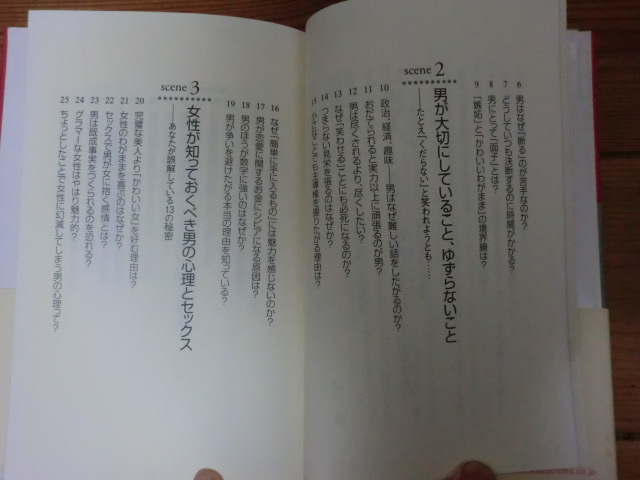 6 男はなぜ「断る」のが苦手なのか?
7 どうしていつも決断するのに時間がかかる?
8 男にとって「面子」とは?
9 「嫉妬」と「かわいいわがまま」の境界線は?
scene 2
男が大切にしていること、ゆずらないこと
――たとえ「くだらない」と笑われようとも……
10 政治、経済、趣味――男はなぜ難しい話をしたがるのか?
11 おだてられると実力以上に頑張るのが男?
12 男は尽くされるより、尽くしたい?
13 なぜ「笑わせる」ことにも必死になるのか?
14 つまらない見栄を張るのはなぜか?
15 ことでも主導権を握りたがる理由は?
16 なぜ「簡単に手に入るもの」には魅力を感じないのか?
17 男が恋愛に関するお金にシビアになる原因は?
18 男のほうが数字に強いのはなぜか?
19 男が争いを避けたがる本当の理由を知っている?
scene 3
女性が知っておくべき男の心理とセックス
――あなたが誤解している13の秘密
20 完璧な美人より「かわいい女」を好む理由は?
21 女性のわがままを喜ぶのはなぜか?
22 セックスで男が女に抱く感情とは?
23 男は既成事実をつくられるのを恐れる?
24 グラマーな女性はやはり魅力的?
25 ちょっとしたことで女性に幻滅してしまう男の心理って?